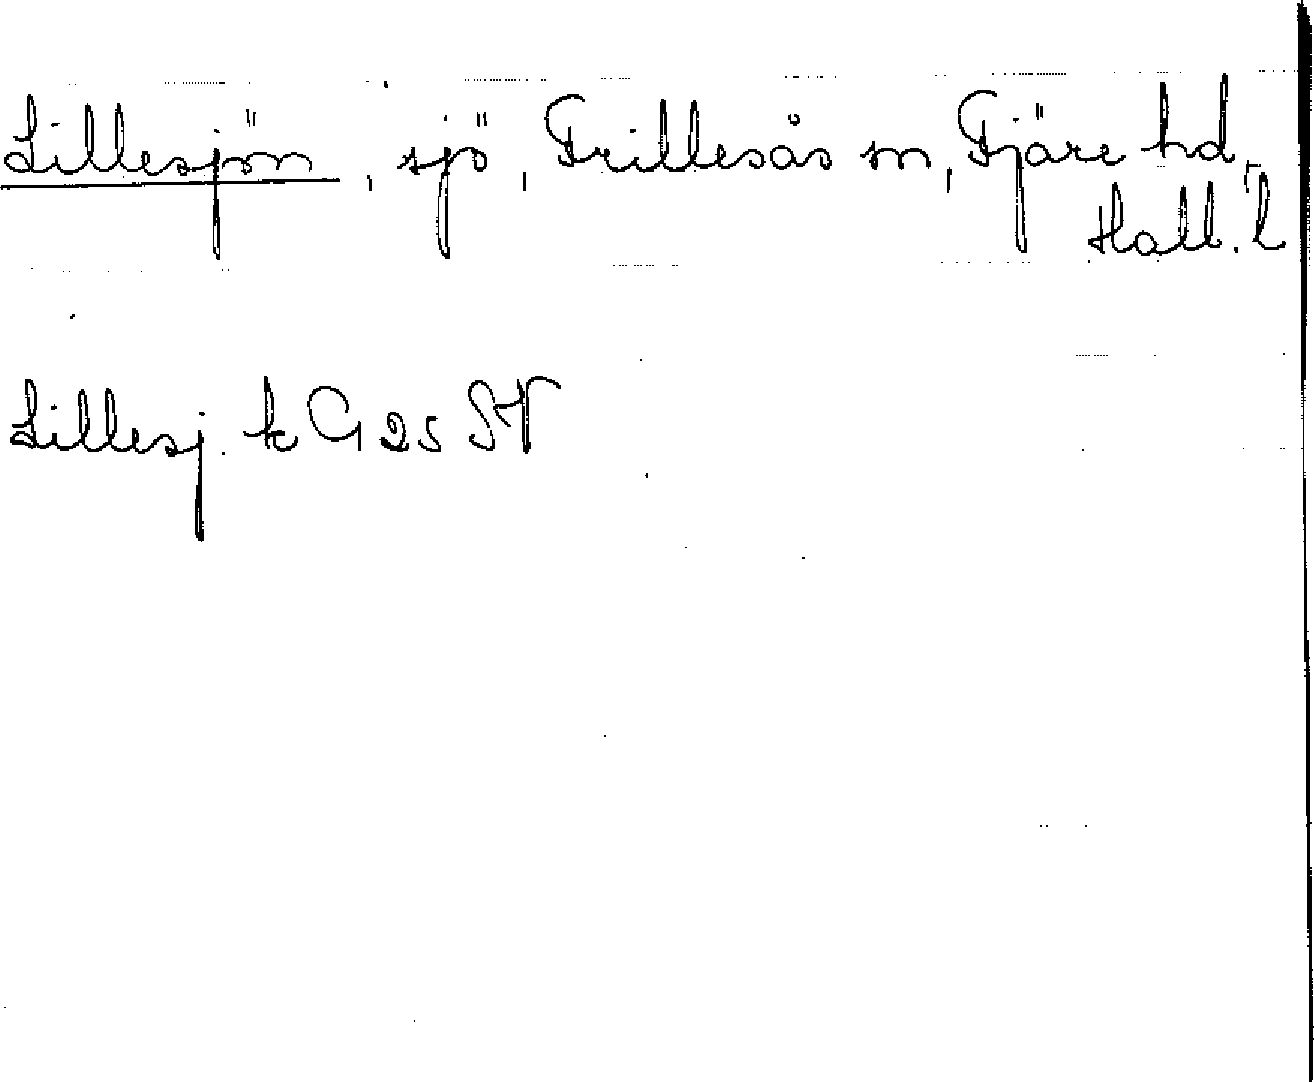 Lillesjön, sjö, Frillesås sn, Fjäre hd,
Hall. l
Lillesj. k G 25 SV